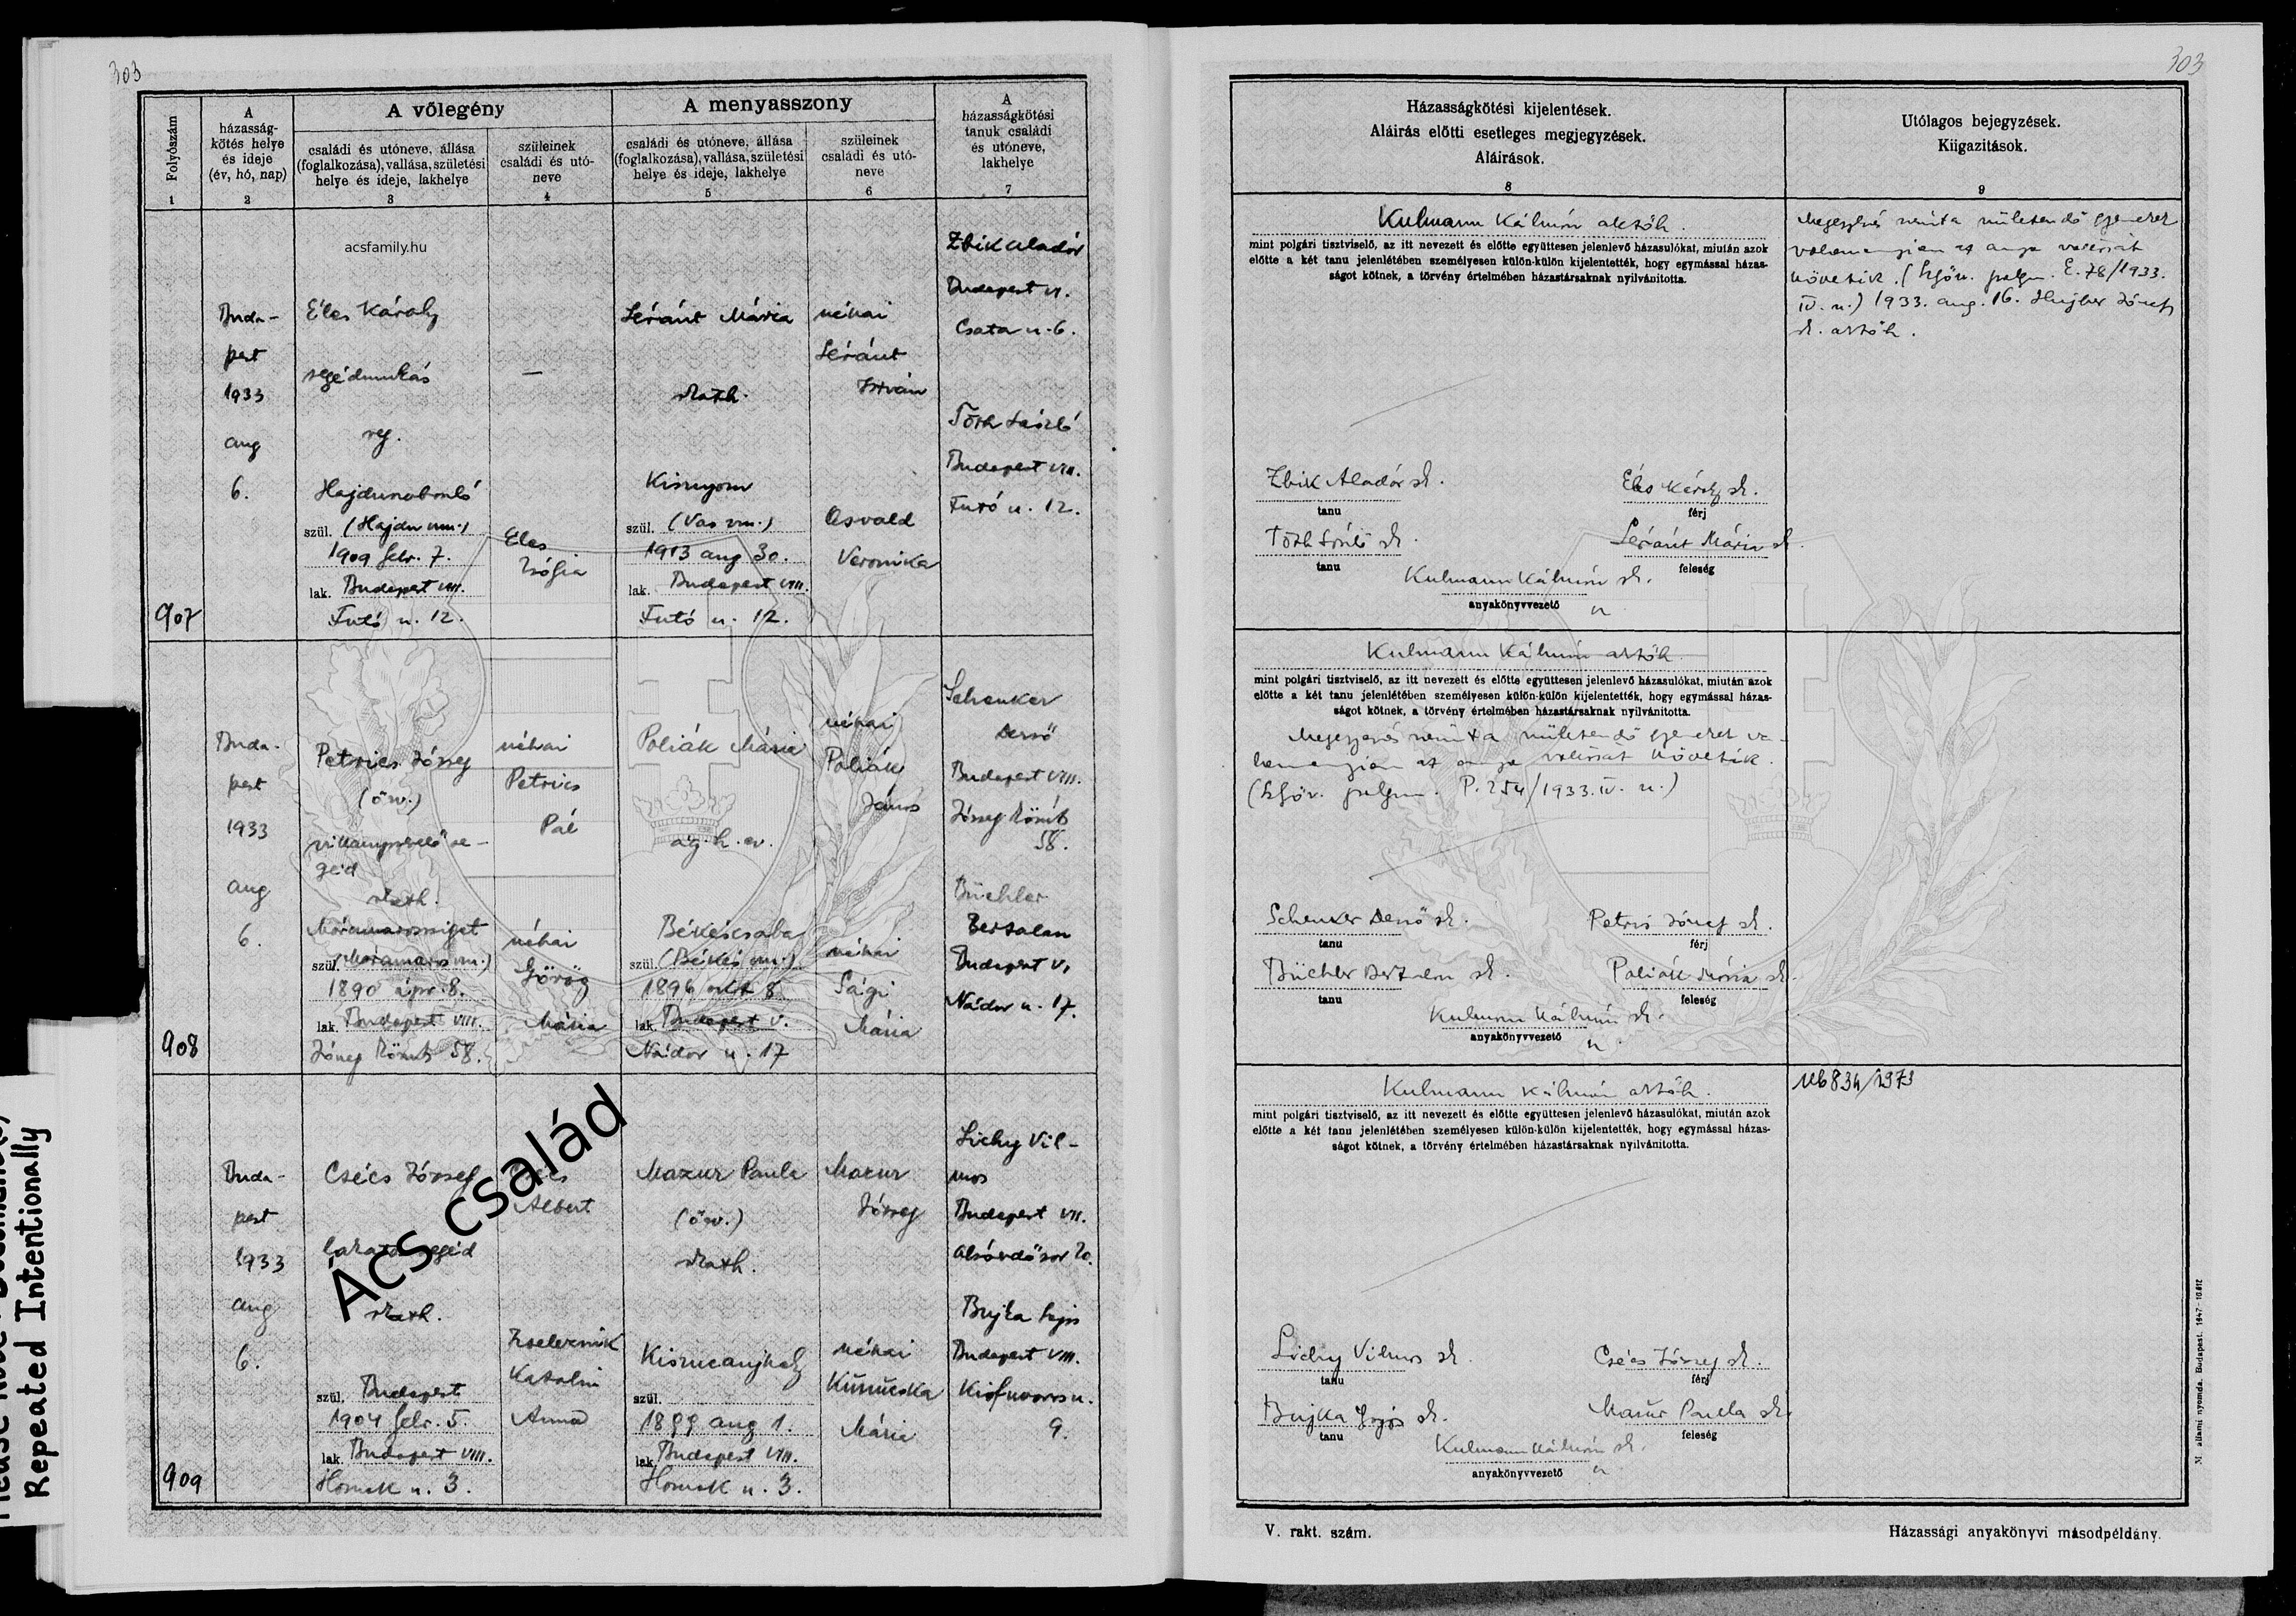 303
Folyószám
1
A
házasság-
kötés helye
és ideje
(év, hó, nap)
2
A vőlegény
családi és utóneve, állása
(foglalkozása), vallása, születési
helye és ideje, lakhelye
3
szüleinek
családi és utó-
neve
4
A menyasszony
családi és utóneve, állása
(foglalkozása), vallása, születési
helye és ideje, lakhelye
5
szüleinek
családi és utó-
neve
6
A
házasságkötési
tanuk családi
és utóneve,
lakhelye
7
acsfamily.hu
907
Buda-
pest
1933
aug
6.
Éles Károly
segédmunkás
ref.
szül. (Hajdu vm.)
1909 febr. 7.
lak. Budapest VIII.
Futó u. 12.
—
Eles
Zsófia
Léránt Mária
rkath.
Kisunyom
szül. (Vas vm.)
1913 aug 30.
lak. Budapest VIII.
Futó u. 12.
néhai
Léránt
István
Osvald
Veronika
Zbik Aladár
Budapest VI.
Csata u. 6.
Tóth László
Budapest VIII.
Futó u. 12.
908
Buda-
pest
1933
aug
6.
Petrics József
(özv.)
villanyszerelő se-
géd
rkath.
Máramarossziget
szül. (Máramaros vm.)
1890 ápr. 8.
lak. Budapest VIII.
József körút 58.
néhai
Petrics
Pál
néhai
Görög
Mária
Poliák Mária
ág. h. ev.
Békéscsaba
szül. (Békés vm.)
1896 okt 8.
lak. Budapest V.
Nádor u. 17
néhai
Poliák
János
néhai
Sági
Mária
Schenker
Dezső
Budapest VIII.
József körút
58.
Büchler
Bertalan
Budapest V.
Nádor u. 17.
909
Buda-
pest
1933
aug
6.
Csécs József
lakatos segéd
rkath.
szül. Budapest
1904 febr. 5.
lak. Budapest VIII.
u. 3.
Csécs
Albert
Katalin
Anna
Mazur Paula
(özv.)
rkath.
szül.
1899 aug 1.
lak. Budapest VIII.
u. 3.
Mazur
József
néhai
Mária
Lichy Vil-
mos
Budapest VII.
Alsóerdősor 20.
Bujka Lajos
Budapest VIII.
Kisfuvaros u.
9.
Ács család
Repeated Intentionally
303
Házasságkötési kijelentések.
Aláirás előtti esetleges megjegyzések.
Aláirások.
8
Utólagos bejegyzések.
Kiigazitások.
9
Kulmann Kálmán aktőh.
mint polgári tisztviselő, az itt nevezett és előtte együttesen jelenlevő házasulókat, miután azok
előtte a két tanu jelenlétében személyesen külön-külön kijelentették, hogy egymással házas-
ságot kötnek, a törvény értelmében házastársaknak nyilvánitotta.
Zbik Aladár sk.
tanu
Éles Károly sk.
férj
Tóth László sk.
tanu
Léránt Mária sk.
feleség
Kulmann Kálmán sk.
anyakönyvvezető
Megegyezés szerint a születendő gyermekek
valamennyien az anya vallását
követik. (bpjőv. polgm. E. 78/1933.
IV. u.) 1933. aug. 16. Hujber József
sk. aktőh.
Kulmann Kálmán aktőh.
mint polgári tisztviselő, az itt nevezett és előtte együttesen jelenlevő házasulókat, miután azok
előtte a két tanu jelenlétében személyesen külön-külön kijelentették, hogy egymással házas-
ságot kötnek, a törvény értelmében házastársaknak nyilvánitotta.
Megegyezés szerint a születendő gyermekek va-
lamennyien az anya vallását követik.
polgm. P. 254/1933. IV. u.)
Schenker Dezső sk.
tanu
Petris József sk.
férj
Büchler Bertalan sk.
tanu
Poliák Mária sk.
feleség
Kulmann Kálmán sk.
anyakönyvvezető
Kulmann Kálmán aktőh.
mint polgári tisztviselő, az itt nevezett és előtte együttesen jelenlevő házasulókat, miután azok
előtte a két tanu jelenlétében személyesen külön-külön kijelentették, hogy egymással házas-
ságot kötnek, a törvény értelmében házastársaknak nyilvánitotta.
Lichy Vilmos sk.
tanu
Csécs József sk.
férj
Bujka Lajos sk.
tanu
Mazur Paula sk.
feleség
Kulmann Kálmán sk.
anyakönyvvezető
V. rakt. szám.
Házassági anyakönyvi másodpéldány.